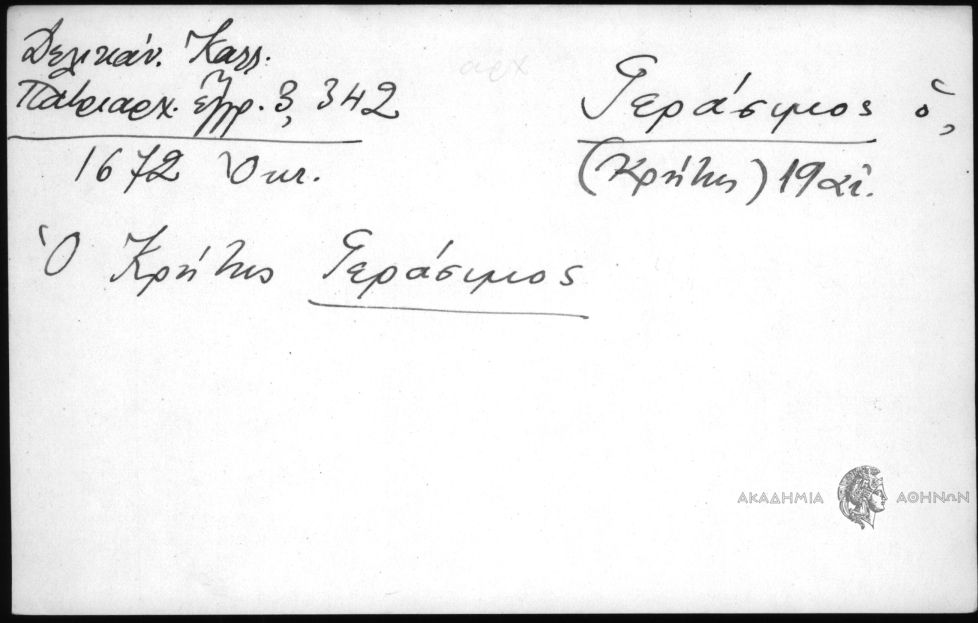 Δελικάν. Καλλ.
Πατριαρχ. ἔγγρ. 3, 342
1672 Ὀκτ.
αρχ
Γεράσιμος ὁ,
(Κρήτης) 19
Ὁ Κρήτης Γεράσιμος
ΑΚΑΔΗΜΙΑ ΑΘΗΝΩΝ